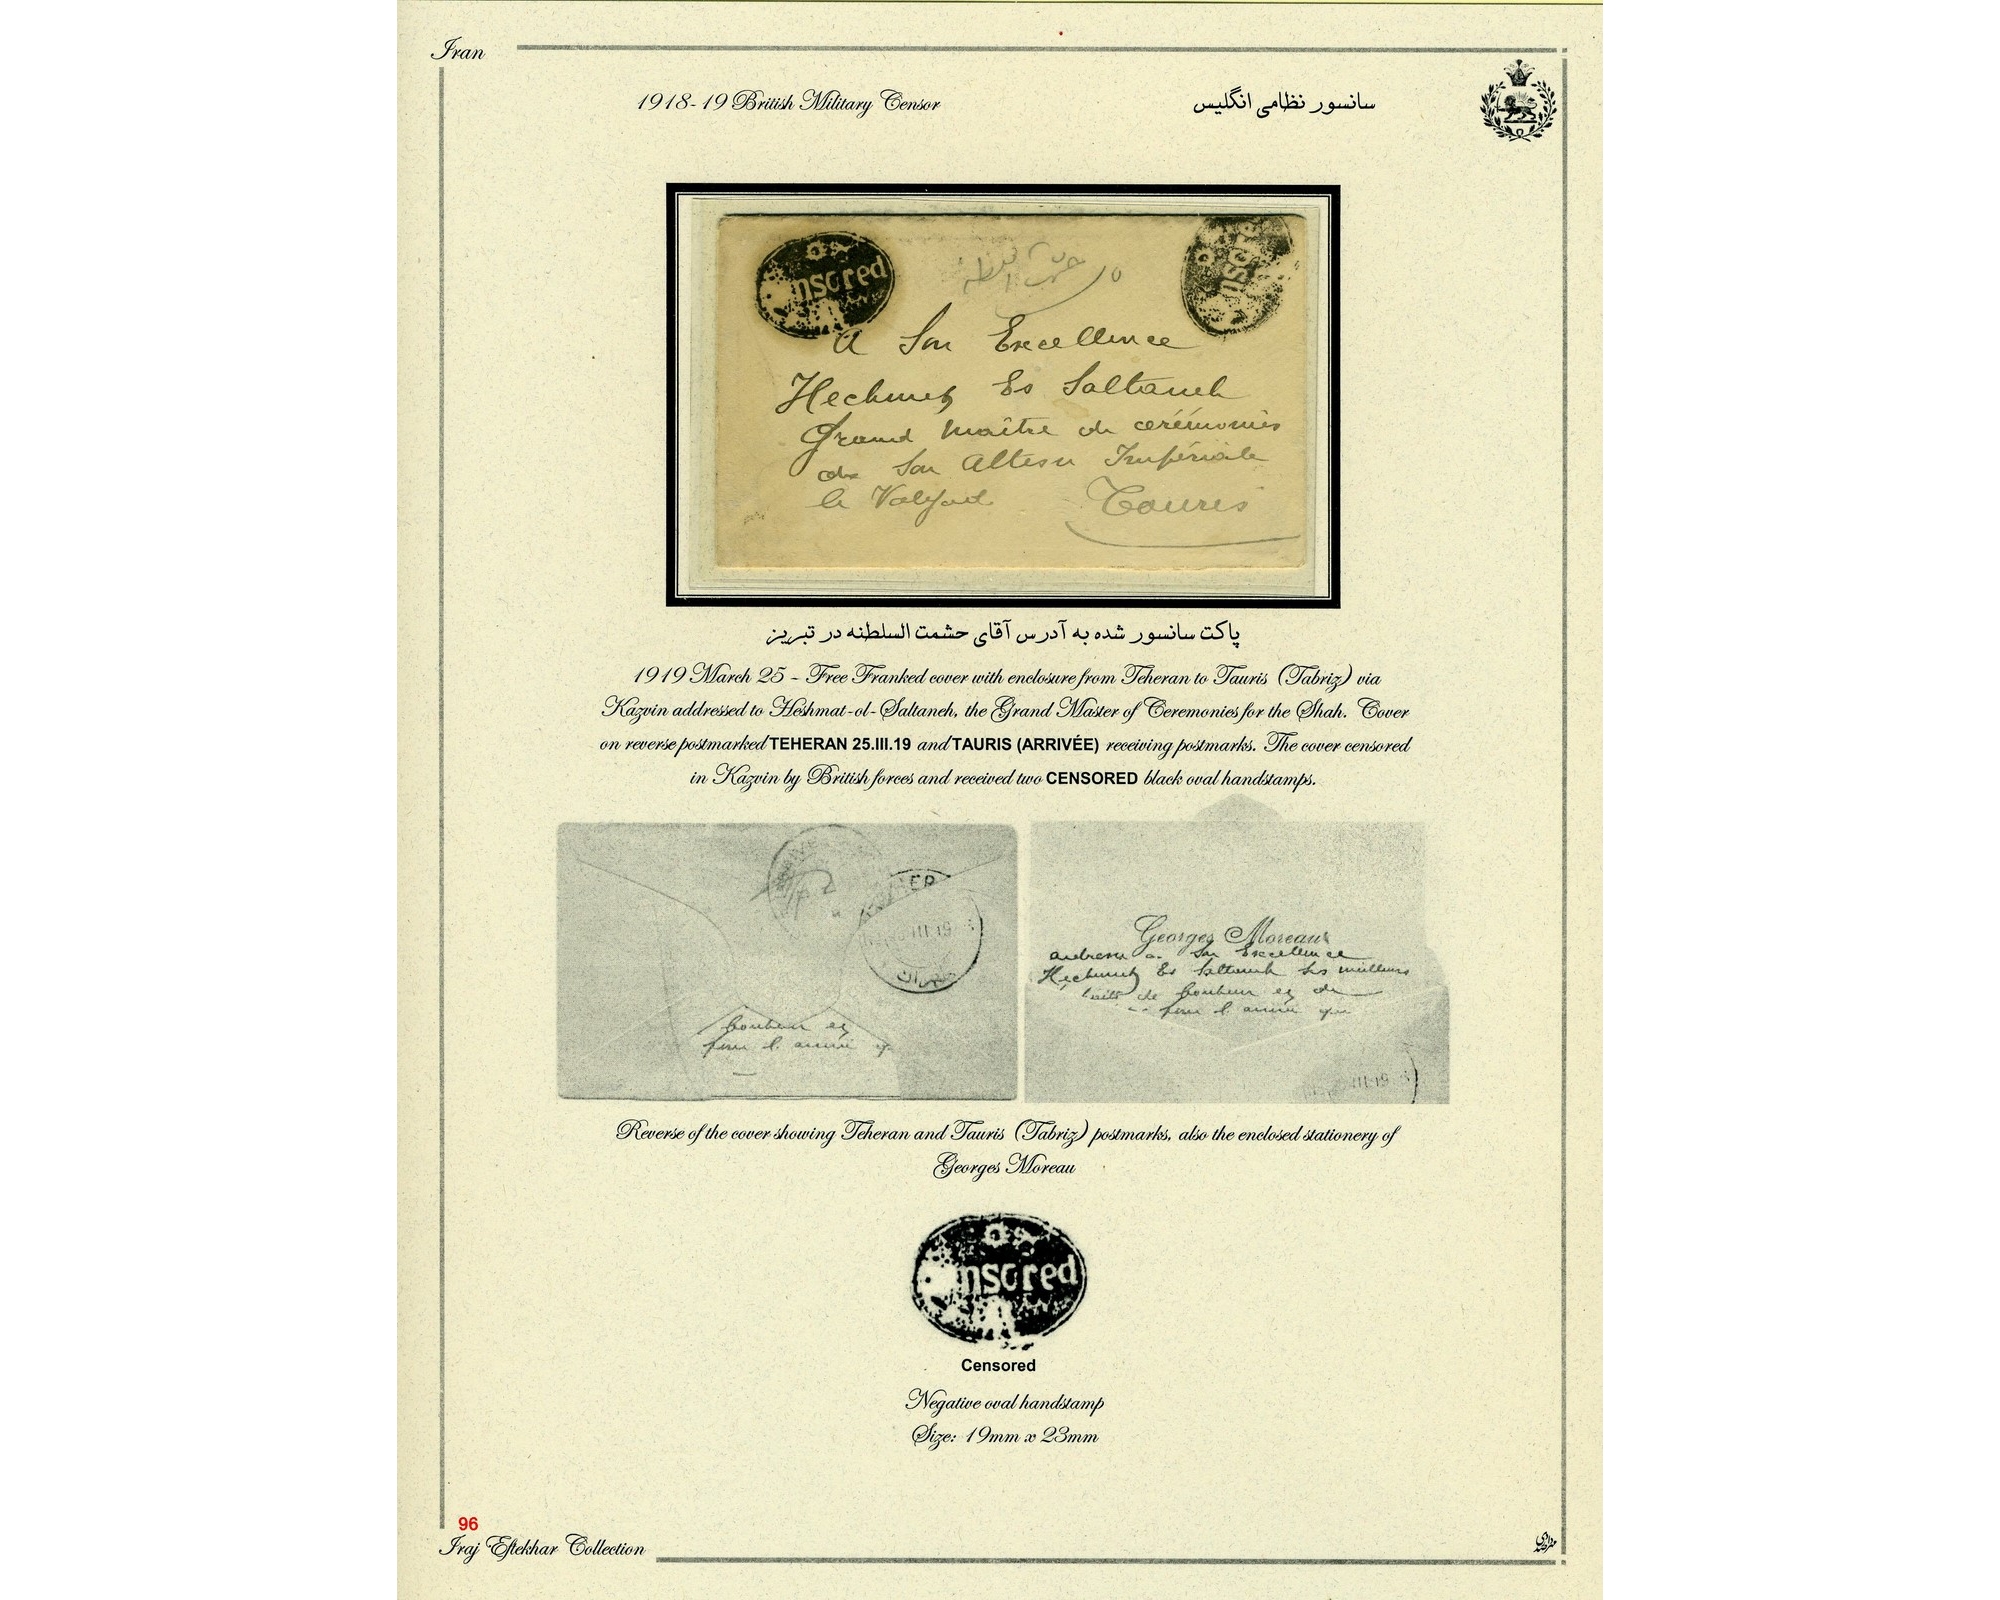 Iran
1918-19 British Military Censor
سانسور نظامی انگلیس
Censored
A Son Excellence
Hechmet Es Saltaneh
Grand Maître de cérémonies
de Son Altesse Impériale
le Valyad Tauris
پاکت سانسور شده به آدرس آقای حشمت السلطنه در تبریز
1919 March 25 - Free Franked cover with enclosure from Teheran to Tauris (Tabriz) via
Kazvin addressed to Heshmat-ol-Saltaneh, the Grand Master of Ceremonies for the Shah. Cover
on reverse postmarked TEHERAN 25.III.19 and TAURIS (ARRIVÉE) receiving postmarks. The cover censored
in Kazvin by British forces and received two CENSORED black oval handstamps.
III 19
طهران
bonheur et
pour l'année
Georges Moreau
adresse a Son Excellence
Hechmet Es Saltaneh ses meilleurs
de bonheur et de
pour l'année
III 19
Reverse of the cover showing Teheran and Tauris (Tabriz) postmarks, also the enclosed stationery of
Georges Moreau
nsored
Censored
Negative oval handstamp
Size: 19mm x 23mm
96
Iraj Eftekhar Collection